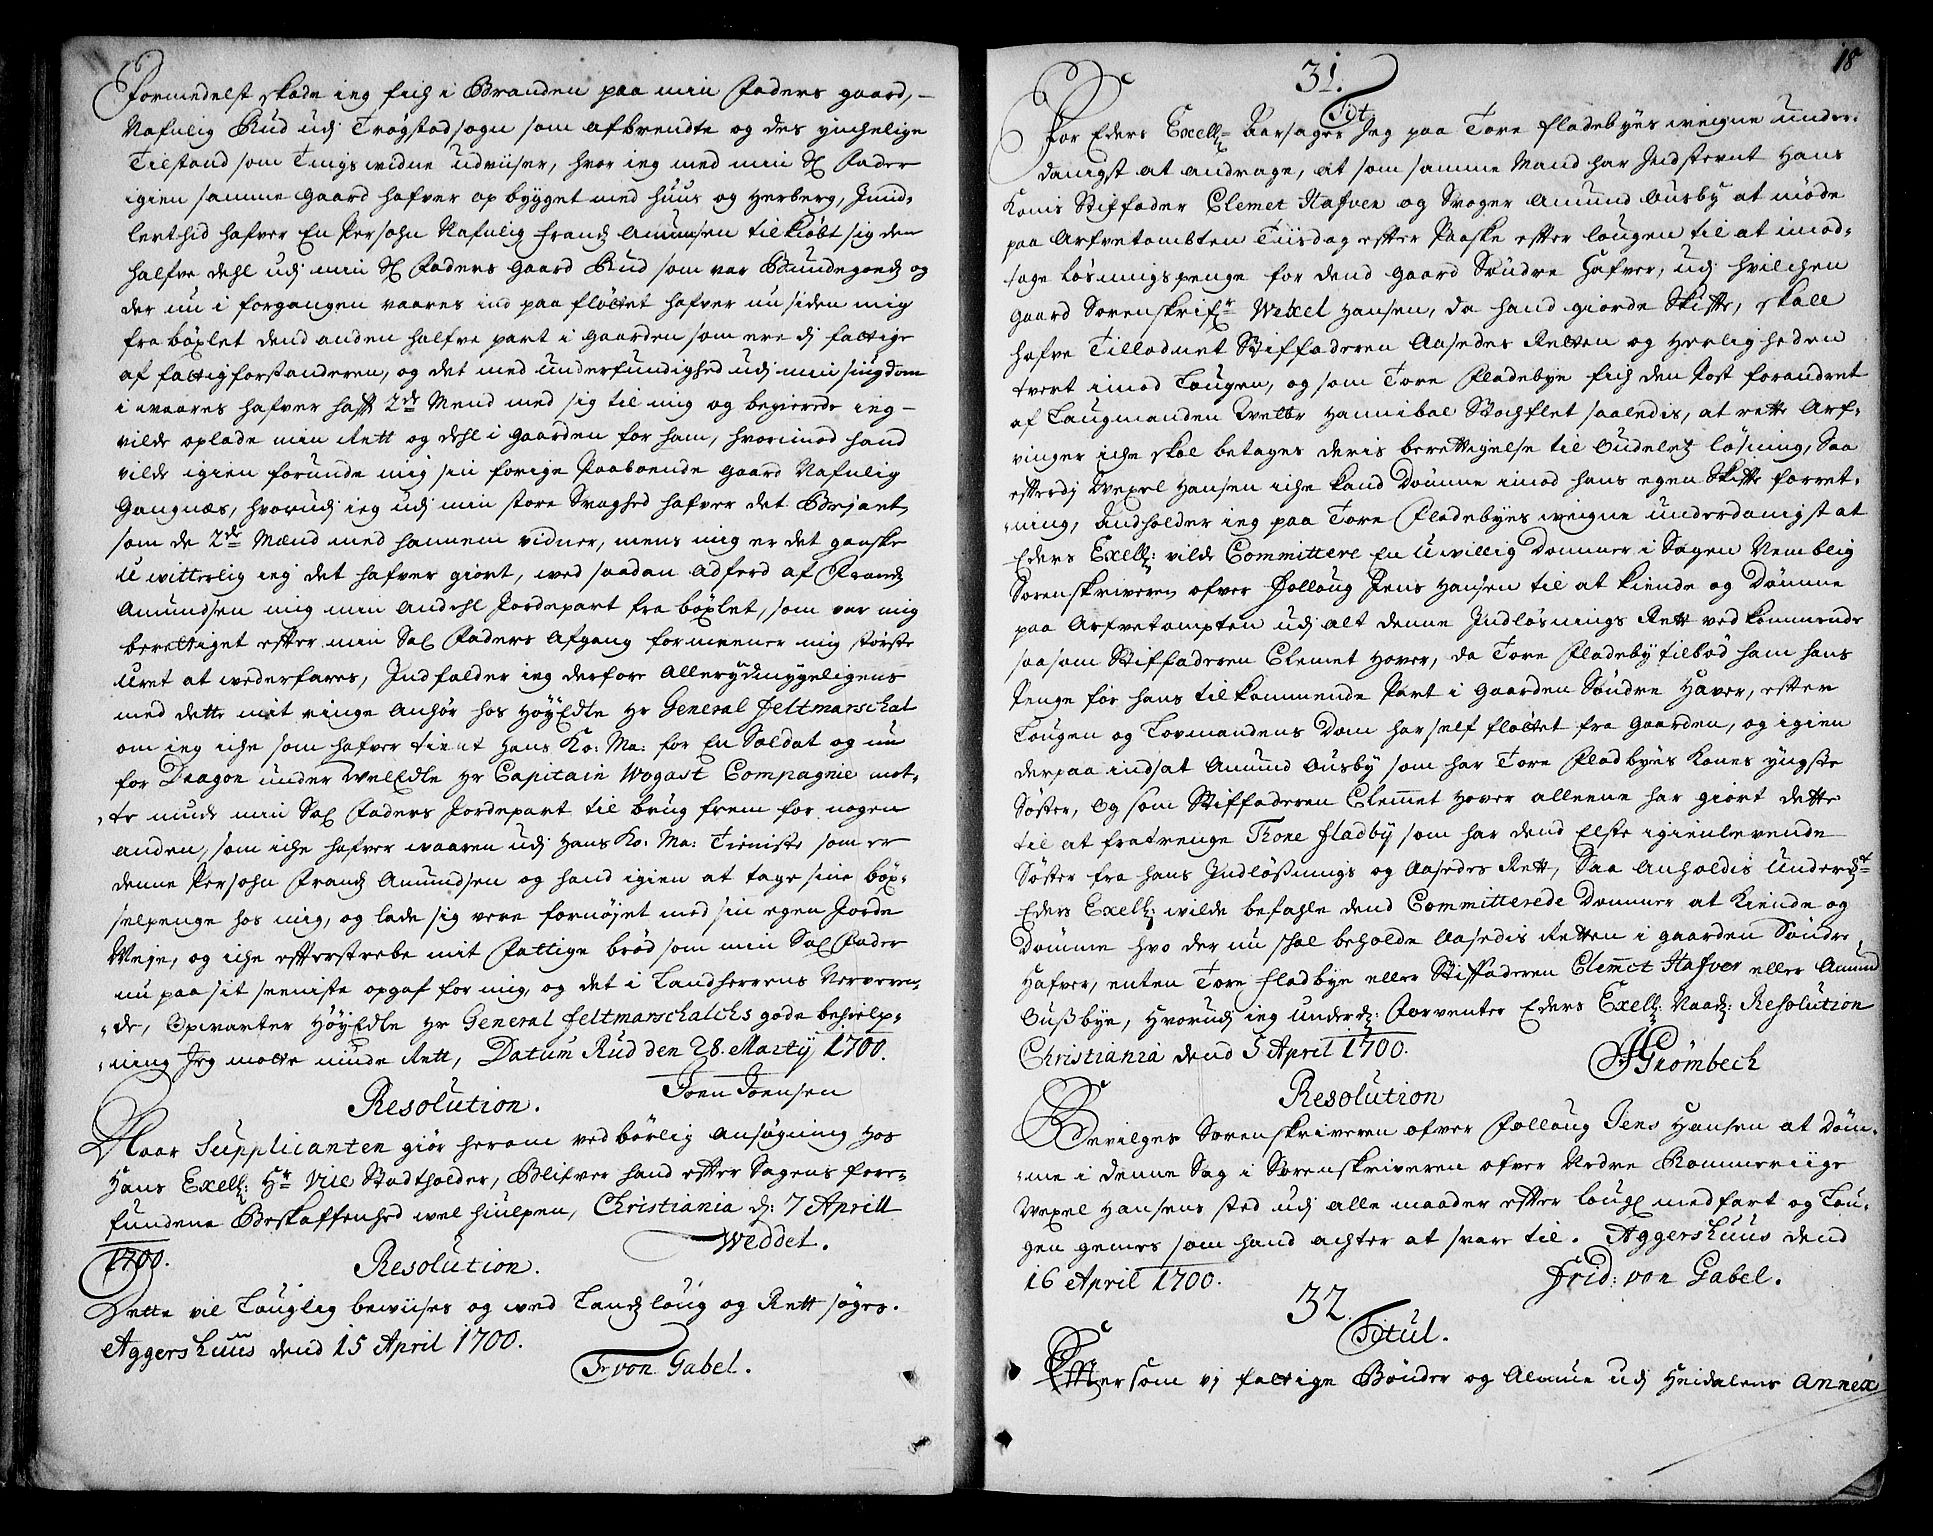 Formedelst skade ieg fich i Branden paa min Faders gaard,
Nafnlig Rud udj Trøgstadsogn som afbrendte og des ynchelige
Tilstand som Tingsvidne udviiser, hvor ieg med min Sl Fader
igien samme gaard hafver op bygget med huus og herberg, Imid-
lertiid hafver En Persohn Nafnlig Frandz Amunsen tilkiøbt sig den
halfve dehl udj min Sl Faders Gaard Rud som var Bundegoedz og
der nu i forgangen vaares ind paa fløttet hafver nu siden mig
fra bøxlet dend anden halfve part i Gaarden som ere dj fattige
af fattigforstanderen, og det med underfundighed udj min siugdom
i vaares hafver hafft 2de Mend med sig til mig og begierede ieg
vilde oplade min Rett og dehl i Gaarden for ham, hvorimod hand
vilde igien forunde mig sin forige Paaboende gaard Nafnlig
Gangnæs, hvorudj ieg udj min store Svaghed hafver det Bejaet,
som de 2de Mænd med hannem vidner, mens mig er det ganske
uwitterlig ieg det hafver giort, wed saadan adferd af Frandz
Amundsen mig min andehl Jordepart fra bøxlet, som var mig
berettiget efter min Sal Faders Afgang formeener mig største
uret at wederfares, Indfalder ieg derfore allerydmygeligens
med dette mit ringe Anhør hos HøyEdle Hr General feltmarschal
om ieg iche som hafver tient Hans Ko: Ma: for En Soldat og nu
for Dragon under WelEdle Hr Capitain Wogast Compagnie mot-
te nyde min Sal Faders Jordepart til brug frem for nogen
anden, som iche hafver waaren udj Hans Ko: Ma: Tieniste som er
denne Persohn Frandz Amundsen og hand igien at tage sine bøx-
selpenge hos mig, og lade sig vere fornøyet med sin egen Jorde
Weye, og iche efterstrebe mit Fattige brød som min Sal Fader
nu paa sit seeniste opgaf for mig, og det i Landherrens Nerveren-
de, Opwarter HøyEdle Hr General feltmarschalchs gode behielp-
ning Jeg motte nyde Rett, Datum Rud den 28. Martij 1700.
Joen Joensen
Resolution.
Naar Supplicanten giør herom ved børlig ansøgning hos
Hans Exell: Hr Vice Stadtholder, Blifver hand efter Sagens fore-
fundene Beskaffenhed wel hiulpen, Christiania d: 7 Aprill
1700. Weddet.
Resolution.
Dette vil Louglig bewiises og wed Landz loug og Rett søges.
Aggershuus dend 15 April 1700.
Fr von Gabel.
18
31.
Tit
For Eders Exell: Aarsager Jeg paa Tore Fladebyes weigne under-
danigst at andrage, at som samme Mand har Indstevnt Hans
Konis Stiffader Clemet Hafver og Svoger Amund Ousby at møde
paa Arfvetombten Tiisdag efter Paaske efter lougen til at imod-
tage løsningspenge for dend gaard Søndre Hafver, udj hvilchen
gaard Sorenskrifr Wexel Hansen, da hand giorde Skifte, skall
hafve Tilladnet Stiffaderen Aasedes Retten og herligheden
tvert imod Lougen, og som Tore Fladebye fich den Post forandret
af Laugmanden Welbr Hannibal Stochflet saaledis, at rette Arf-
vinger iche skal betages deris berettigelse til Oudelz løsning, Saa
efterdj Wexel Hansen iche kand Dømme imod hans egen Skifte forret-
ning, Anholder ieg paa Tore Fladebyes weigne underdanigst at
Eders Exell: vilde Committere En Uwillig Dommer i Sagen Nemblig
Sorenskriveren ofver Follaug Jens Hansen til at kiende og Dømme
paa Arfvetompten udj alt denne Indløsnings Rett ved kommende
saasom Stiffaderen Clemet Hover, da Tore Fladeby tilbød ham hans
Penge for hans tilkommende Part i Gaarden Søndre Haver, efter
Lougen og Lovmandens Dom har self fløttet fra Gaarden, og igien
derpaa indsat Amund Ousby som har Tore Fladbyes Kones yngste
Søster, Og som Stiffaderen Clemmet Hover alleene har giort dette
til at fratrenge Thore Fladby som har dend Elste igienlevende
Søster fra hans Indløsnings og Aasedes Rett, Saa Anholdis Underdst
Eders Exell: wilde befahle dend Committerede Dommer at Kiende og
Dømme hvo der nu skal beholde Aasedis Retten i gaarden Søndre
Hafver, enten Tore Fladbye eller Stiffaderen Clemmet Hafver eller Amund
Oussbye, Hvorudj ieg underd: Forventer Eders Exell: Naadz: Resolution
Christiania dend 5 April 1700.
Grømbech
Resolution
Bevilges Sorenskriveren ofver Follaug Jens Hansen at Døm-
me i denne Sag i Sorenskriveren ofver Nedre Rommeriige
Wexel Hansens sted udj alle maader efter lougl medfart og Lou-
gen gemes som hand achter at svare til. Aggershuus dend
16 April 1700. Frid: von Gabel.
32
Titul.
Eftersom vj fattige Bønder og Almue udj Heidalens Annex